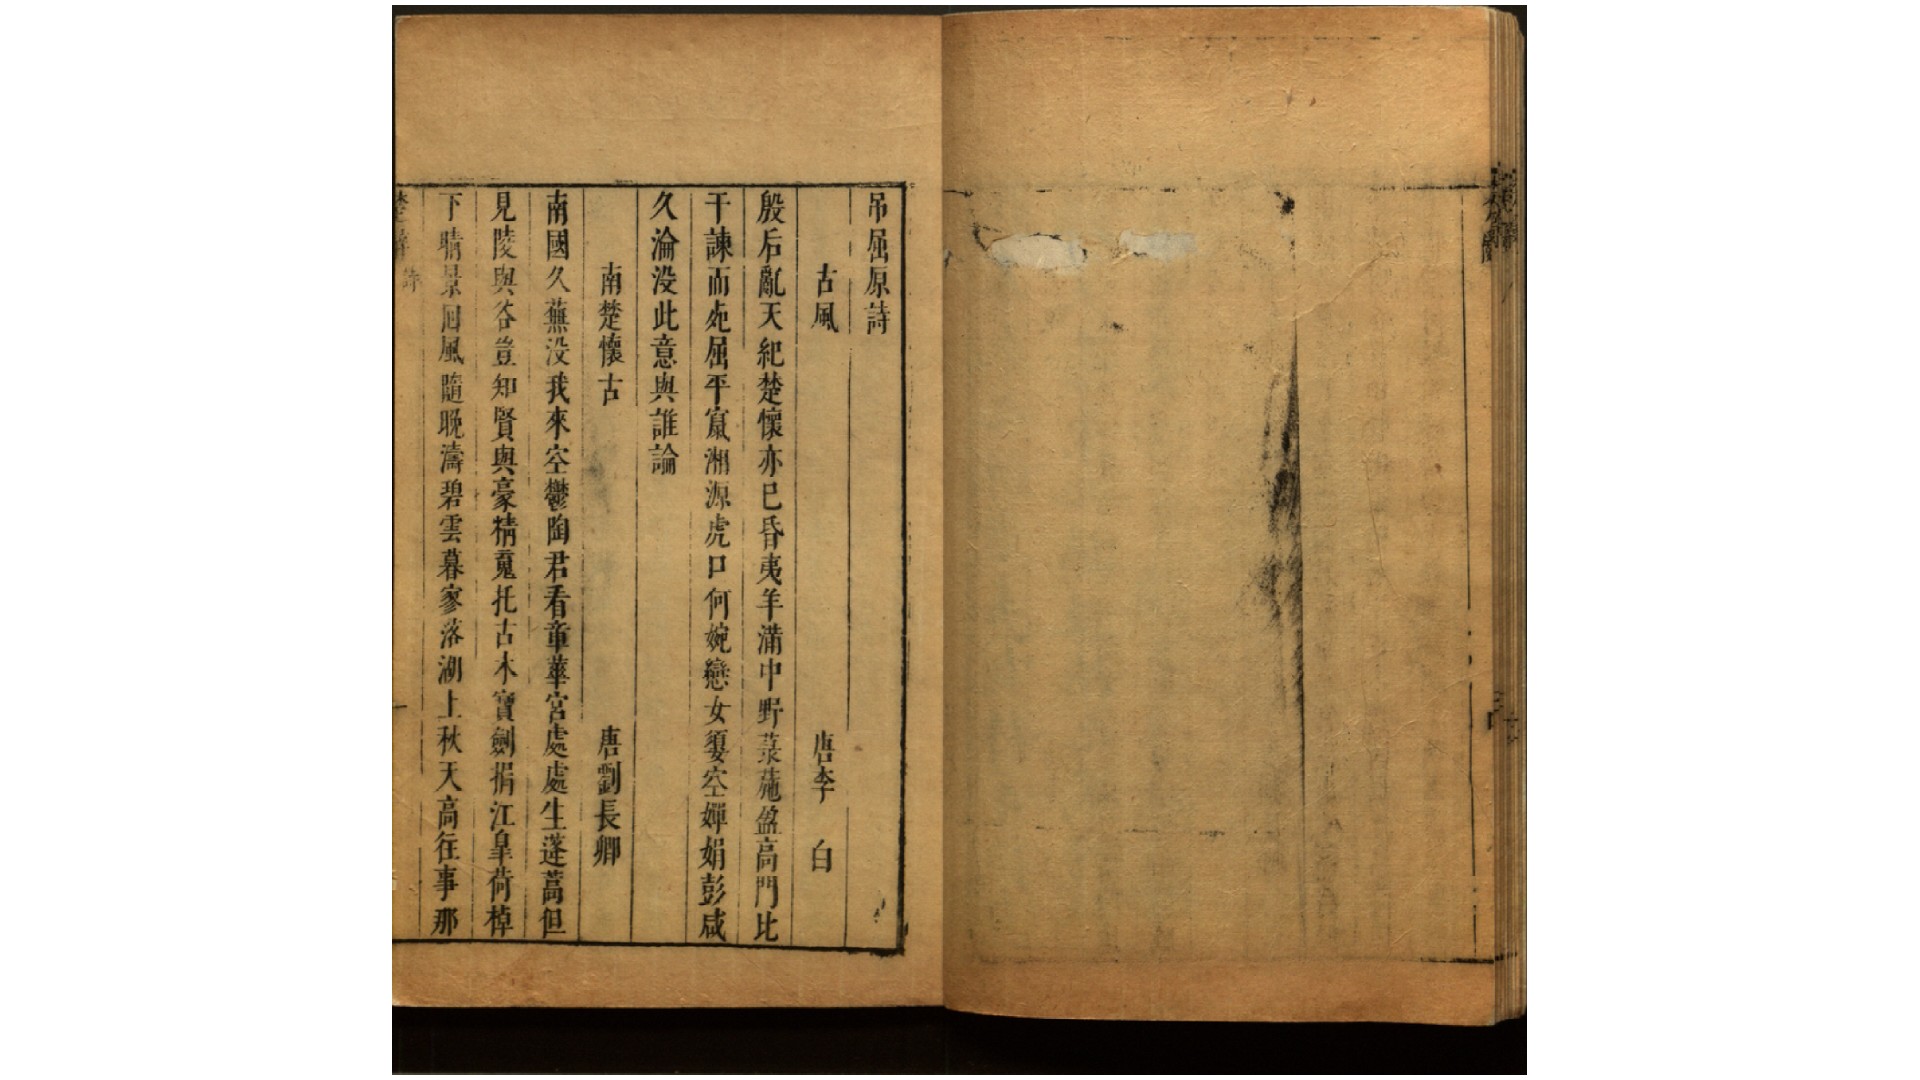 吊屈原詩
古風　唐李　白
殷后亂天紀楚懷亦已昏夷羊滿中野菉葹盈高門比
干諫而死屈平竄湘源虎口何婉戀女嬃空嬋娟彭咸
久淪没此意與誰論
南楚懷古　唐劉長卿
南國久蕪没我來空鬱陶君看章華宮處處生蓬蒿但
見陵與谷豈知賢與豪精䰟托古木寶劍捐江臯荷棹
下晴景回風隨晚濤碧雲暮寥落湖上秋天高往事那
楚辭　詩　一